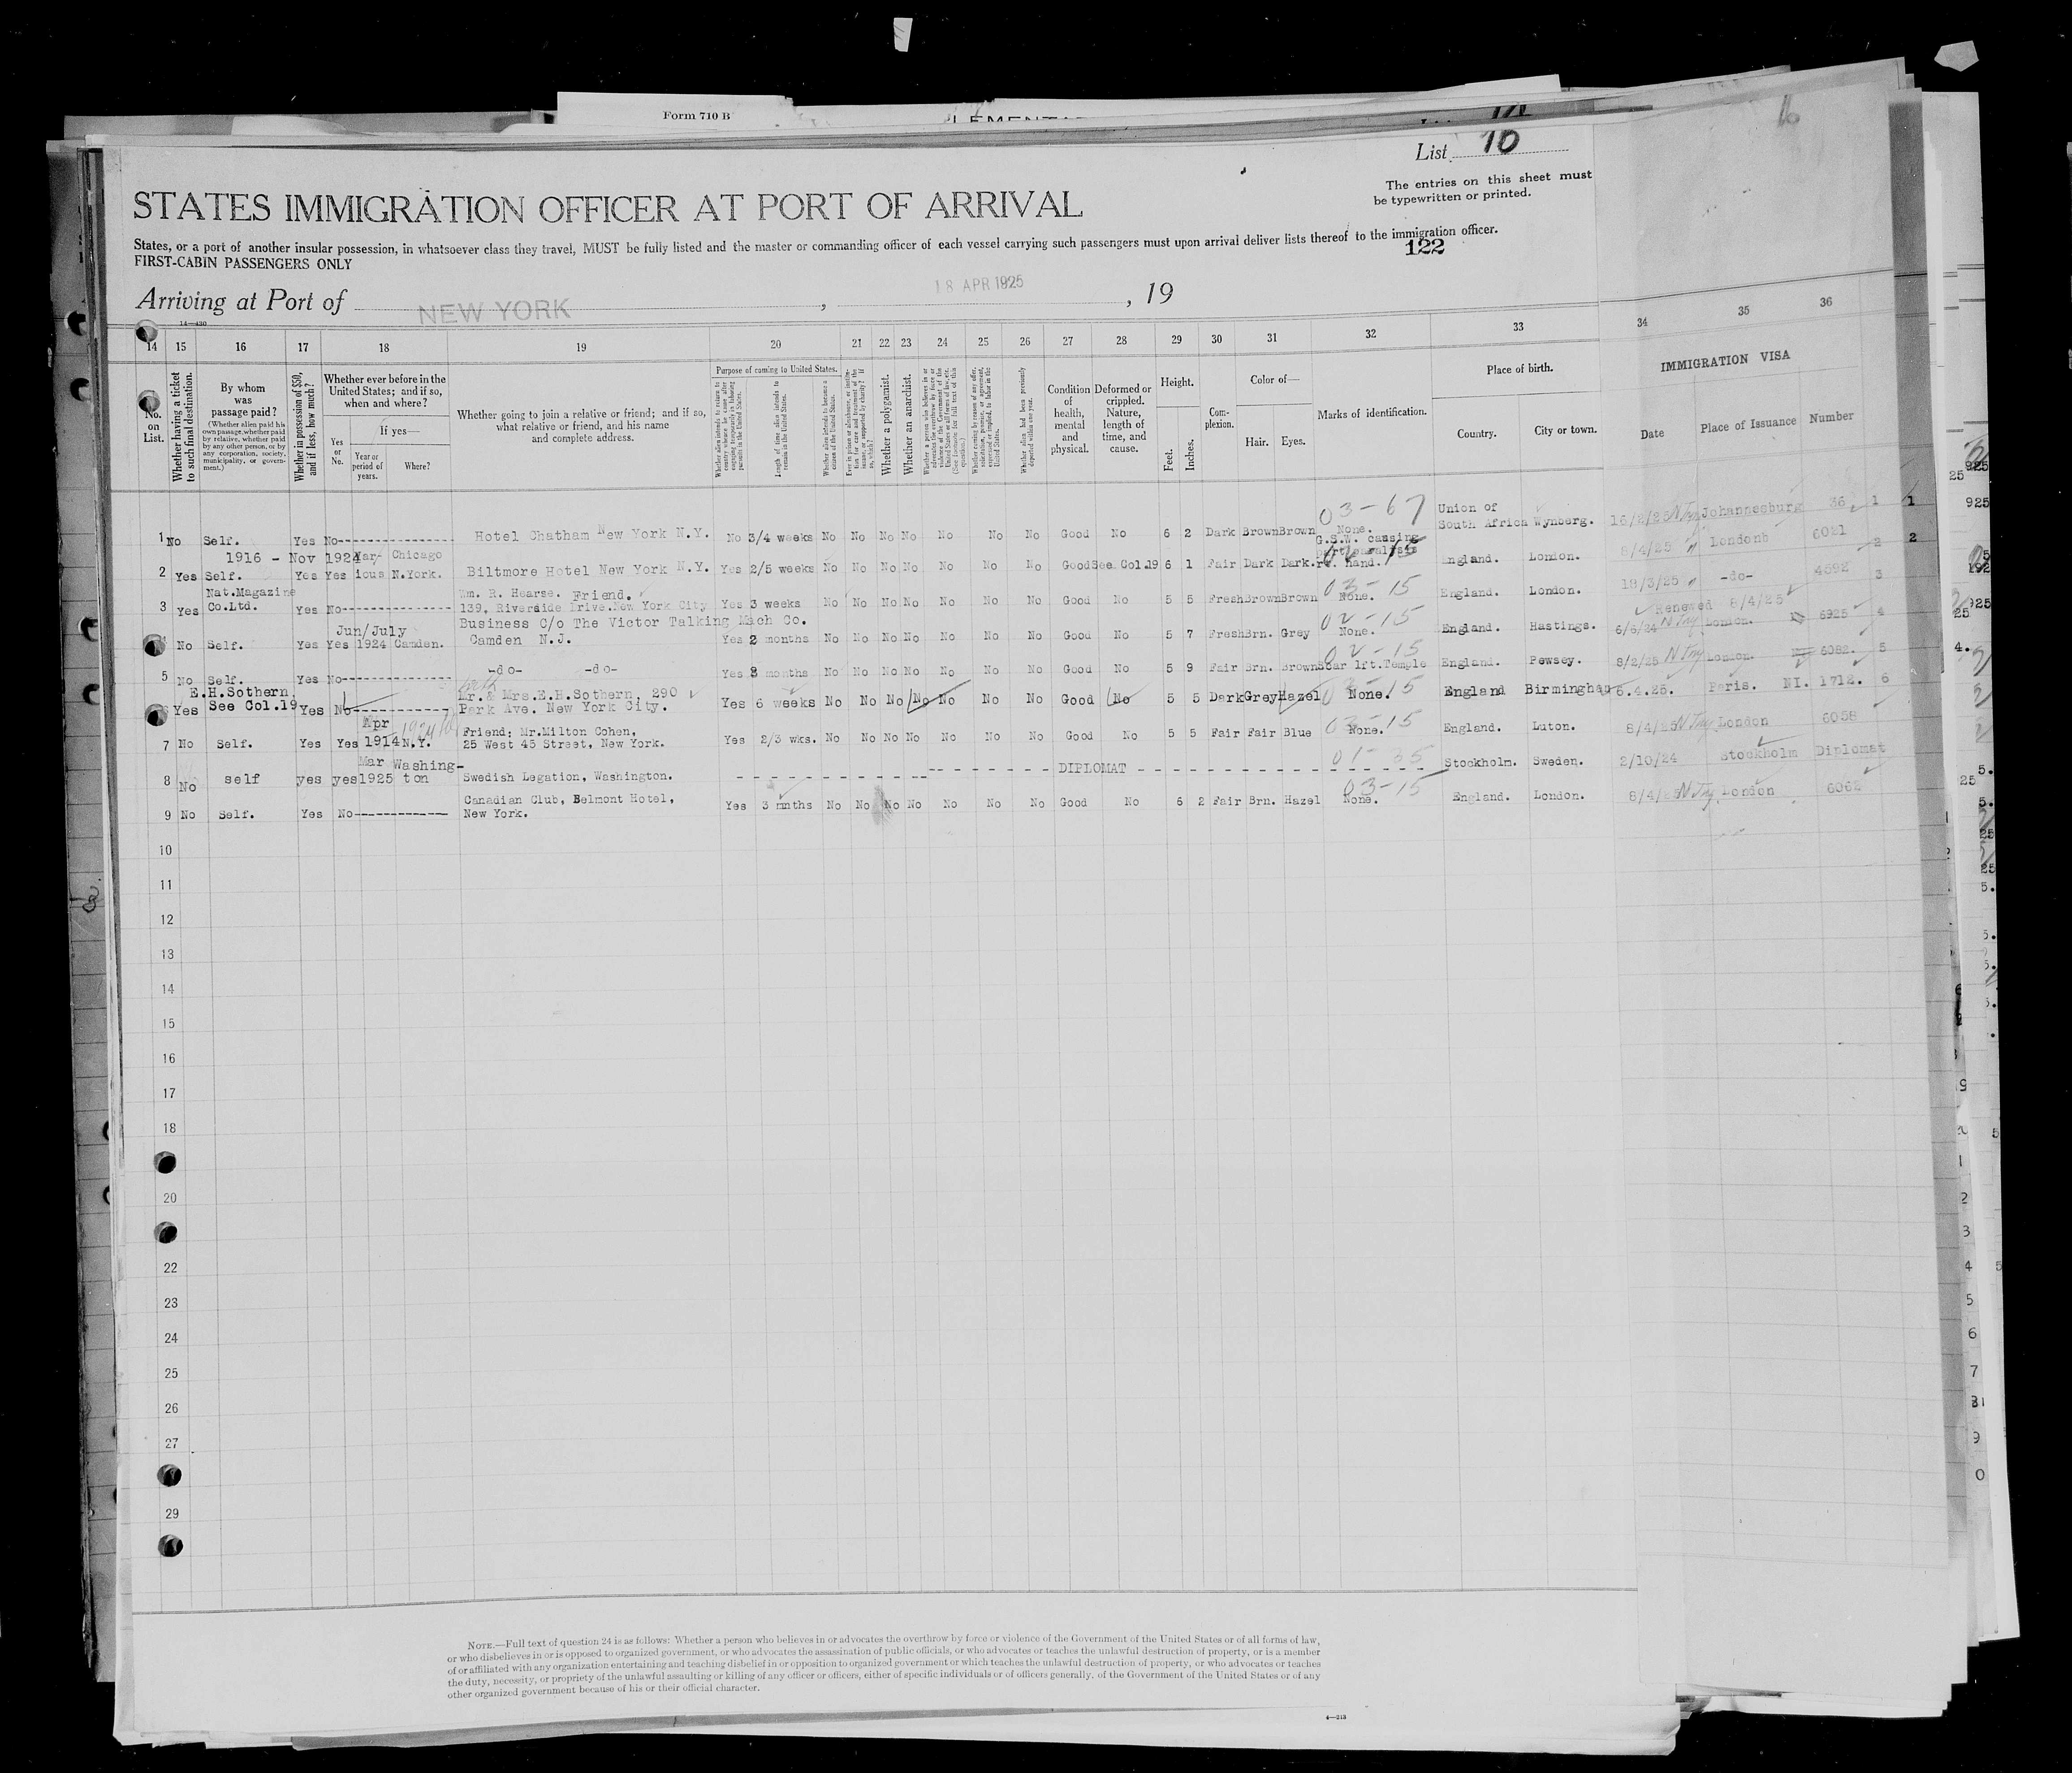 Form 710 B
List 10
The entries on this sheet must
be typewritten or printed.
STATES IMMIGRATION OFFICER AT PORT OF ARRIVAL
States, or a port of another insular possession, in whatsoever class they travel, MUST be fully listed and the master or commanding officer of each vessel carrying such passengers must upon arrival deliver lists thereof to the immigration officer.
FIRST-CABIN PASSENGERS ONLY
122
Arriving at Port of NEW YORK, 18 APR 1925, 19
14 15 16 17 18 19 20 21 22 23 24 25 26 27 28 29 30 31 32 33 34 35 36
No. on List.
Whether having a ticket to such final destination.
By whom was passage paid?
(Whether alien paid his own passage, whether paid by relative, whether paid by any other person, or by any corporation, society, municipality, or government.)
Whether in possession of $50, and if less, how much?
Whether ever before in the United States; and if so, when and where?
Yes or No.
If yes—
Year or period of years.
Where?
Whether going to join a relative or friend; and if so, what relative or friend, and his name and complete address.
Purpose of coming to United States.
Length of time alien intends to remain in the United States.
Whether alien intends to become a citizen of the United States.
Whether a polygamist.
Whether an anarchist.
Condition of health, mental and physical.
Deformed or crippled. Nature, length of time, and cause.
Height.
Feet.
Inches.
Complexion.
Color of—
Hair.
Eyes.
Marks of identification.
Place of birth.
Country.
City or town.
IMMIGRATION VISA
Date
Place of Issuance
Number
1 No Self. Yes No Hotel Chatham New York N.Y. No 3/4 weeks No No No No No No No Good No 6 2 Dark Brown Brown 03-67 None. Union of South Africa Wynberg. Johannesburg 36 1
1916 - Nov 1924
2 Yes Self. Yes Yes Various Chicago N.York. Biltmore Hotel New York N.Y. Yes 2/5 weeks No No No No No No No Good See Col.19 6 1 Fair Dark Dark. G.S.W. causing rt. hand. England. London. 8/4/25 London 6021 2
3 Yes Nat.Magazine Co.Ltd. Yes No Wm. R. Hearse. Friend. 139, Riverside Drive.New York City Yes 3 weeks No No No No No No No Good No 5 5 Fresh Brown Brown 03-15 None. England. London. 18/3/25 -do- 4592 3
Renewed 8/4/25
No Self. Yes Yes Jun/July 1924 Camden. Business C/o The Victor Talking Mach Co. Camden N.J. Yes 2 months No No No No No No No Good No 5 7 Fresh Brn. Grey 02-15 None. England. Hastings. 6/6/24 London. 6925 4
5 No Self. Yes No -do- -do- Yes 3 months No No No No No No No Good No 5 9 Fair Brn. Brown 02-15 Scar lft.Temple England. Pewsey. 8/2/25 London. 6082. 5
6 Yes E.H.Sothern, See Col.19 Yes No Mr.& Mrs.E.H.Sothern, 290 Park Ave. New York City. Yes 6 weeks No No No No No No No Good No 5 5 Dark Grey Hazel None. England Birmingham 6.4.25. Paris. NI. 1712. 6
7 No Self. Yes Yes Apr 1914 N.Y. 1924 Friend; Mr.Milton Cohen, 25 West 45 Street, New York. Yes 2/3 wks. No No No No No No No Good No 5 5 Fair Fair Blue 03-15 None. England. Luton. 8/4/25 London 6058
8 No self yes yes Mar 1925 Washington Swedish Legation, Washington. DIPLOMAT 01-35 Stockholm. Sweden. 2/10/24 Stockholm Diplomat
9 No Self. Yes No Canadian Club, Belmont Hotel, New York. Yes 3 mnths No No No No No No No Good No 6 2 Fair Brn. Hazel 03-15 None. England. London. 8/4/25 London 6062
10
11
12
13
14
15
16
17
18
20
22
23
24
25
26
27
29
NOTE.—Full text of question 24 is as follows: Whether a person who believes in or advocates the overthrow by force or violence of the Government of the United States or of all forms of law,
or who disbelieves in or is opposed to organized government, or who advocates the assassination of public officials, or who advocates or teaches the unlawful destruction of property, or is a member
of or affiliated with any organization entertaining and teaching disbelief in or opposition to organized government or which teaches the unlawful destruction of property, or who advocates or teaches
the duty, necessity, or propriety of the unlawful assaulting or killing of any officer or officers, either of specific individuals or of officers generally, of the Government of the United States or of any
other organized government because of his or their official character.